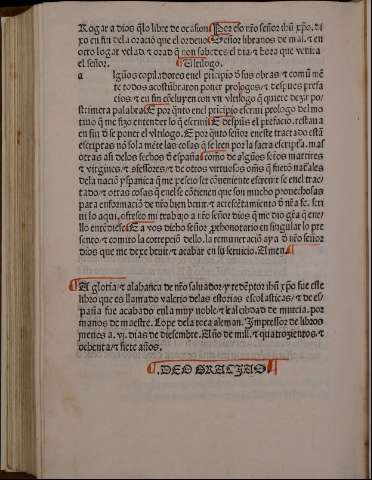 Rogar a dios q̃lo libre de ocasion. Por eso nr̃o señor ihũ xp̃o. di
xo en fin dela oraciõ que el ordeno Señor libranos de mal. ⁊ en
otro logar velad ⁊ orad q̃ non sabedes el dia ⁊ hora que verna
el señor. El vltilogo.
a lgũos copiladores enel prĩcipio d̃ sus obras ⁊ comũ mẽ
te todos acostũbraron poner prologos ⁊ despues prefa
cios ⁊ en fin cõcluyen con vn vltilogo q̃ quiere dezir po
strimera palabra. E por q̃nto enel prĩcipio escreui prologo del mo
tiuo q̃ me fizo entender lo q̃ escreui. E despues el prefacio. restaua
en fin d̃ se poner el vltilogo. E por q̃nto señor eneste tractado estã
escriptas nõ sola mẽte las cosas q̃ se leen por la sacra escriptᵃ. mas
otras asi delos fechos d̃ españa como de algũos sctõs martires
⁊ virgines ⁊ cõfessores ⁊ de otros virtuosos oms̃ q̃ fuerõ naťales
dela naciõ yspanica q̃ me pescio ser cõueniente escreuir se enel trac
tado ⁊ otras cosas q̃ enel se cõtienen que son mucho prouechosas
para enformaciõ de nr̃o bien beuir ⁊ acrescẽtamiẽto d̃ nr̃a fe. scri
ui lo aqui. ofresco mi trabajo a nr̃o señor dios q̃ me dio grᵃ q̃ ene
llo entẽdiese. E a vos dicho señor. ⁊ honorario en singular lo pre
sento. ⁊ comito la correpciõ dello. la remuneraciõ aya d̃ nr̃o señor
dios que me dexe beuir ⁊ acabar en su seruicio. Elmen.
Al gloria ⁊ alabança de nr̃o saluador ⁊ redẽptor ihũ xp̃o fue este
libro que es llamado valerio delas estorias escolasticas ⁊ de es/
paña fue acabado en la muy noble ⁊ leal cibdad de murcia. por
manos de maestre. Lope dela roca aleman. Impressor de libros
jueues a. vj. dias de diesembre. Año de mill. ⁊ quatrozientos ⁊
ochenta ⁊ siete años.
.DEO GRACIAS